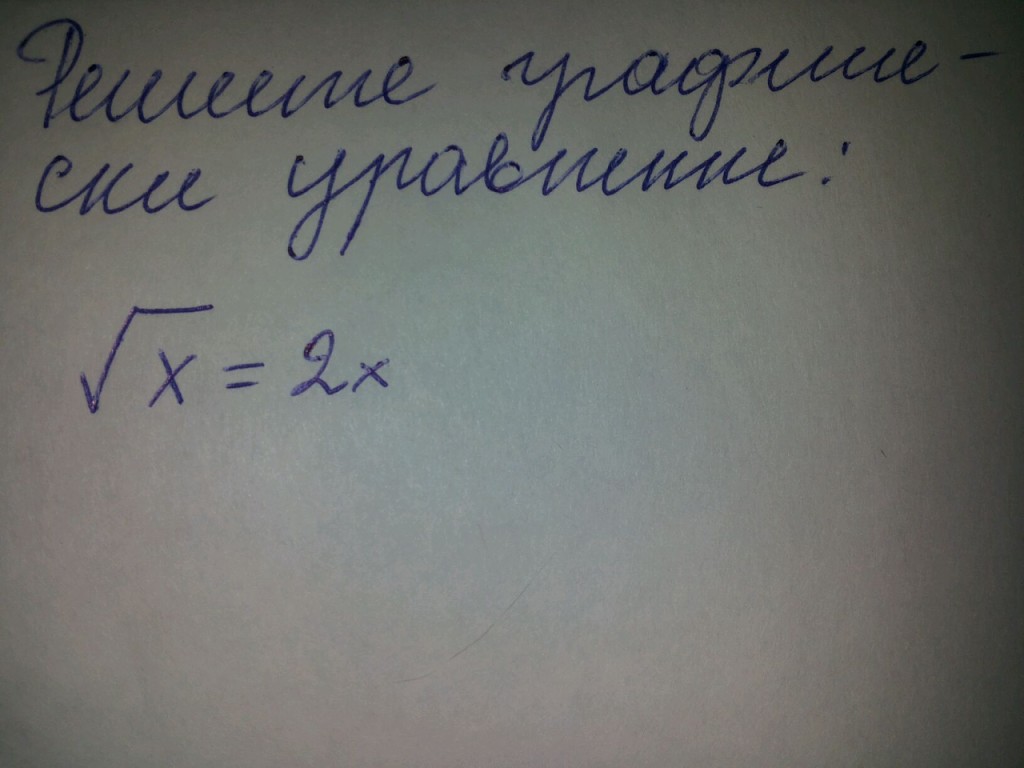 Решите графиче-
ски уравнение:
√x = 2x